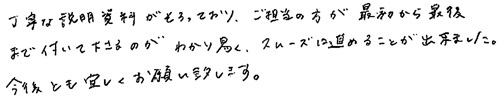 丁寧な説明資料がそろっており、ご担当の方が最初から最後
まで付いて下さるのがわかり易く、スムーズに進めることが出来ました。
今後とも宜しくお願い致します。